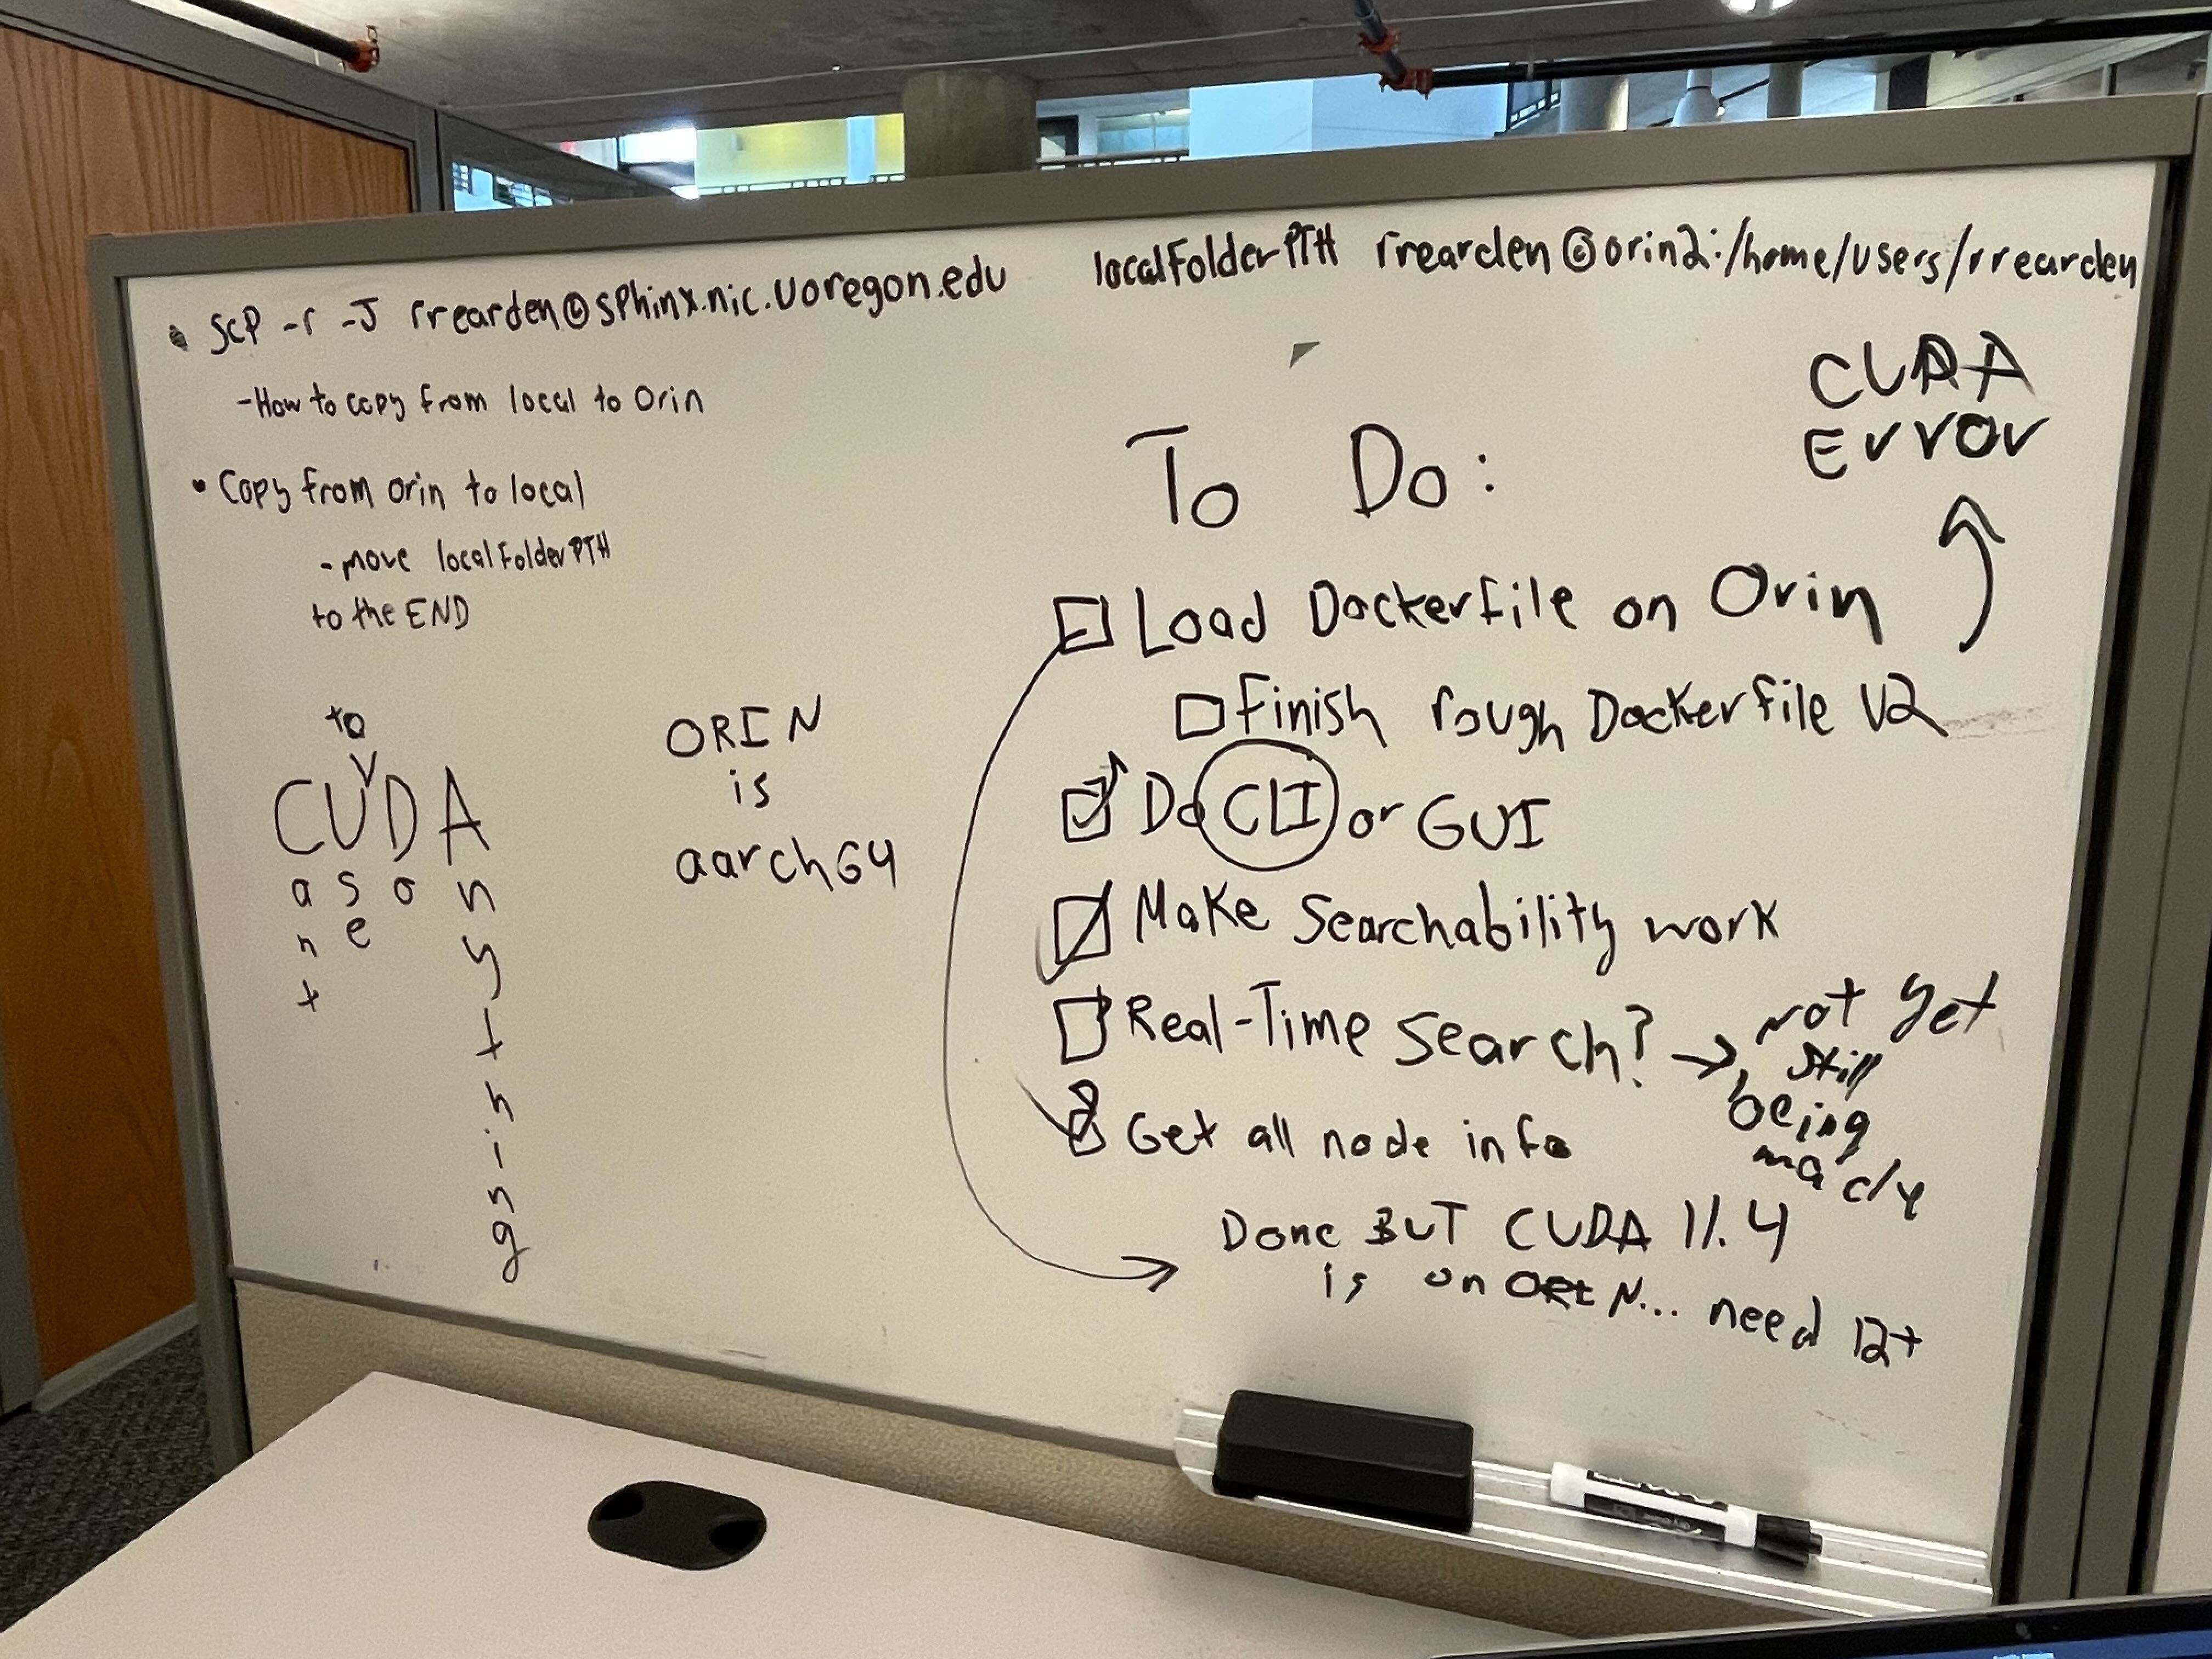 • scp -r -J rrearden@sphinx.nic.uoregon.edu localFolderPTH rrearden@orin2:/home/users/rrearden
-How to copy from local to Orin
• Copy from orin to local
- move localFolderPTH
to the END
to
V
CUDA
a s o n
n e y
t t
h
i
n
g
ORIN
is
aarch64
CUDA
Error
To Do:
Load Dockerfile on Orin
Finish rough Dockerfile V2
Do CLI or GUI
Make Searchability work
Real-Time Search? → not yet
still
being
made
Get all node info
Done BUT CUDA 11.4
is on ORIN... need 12+